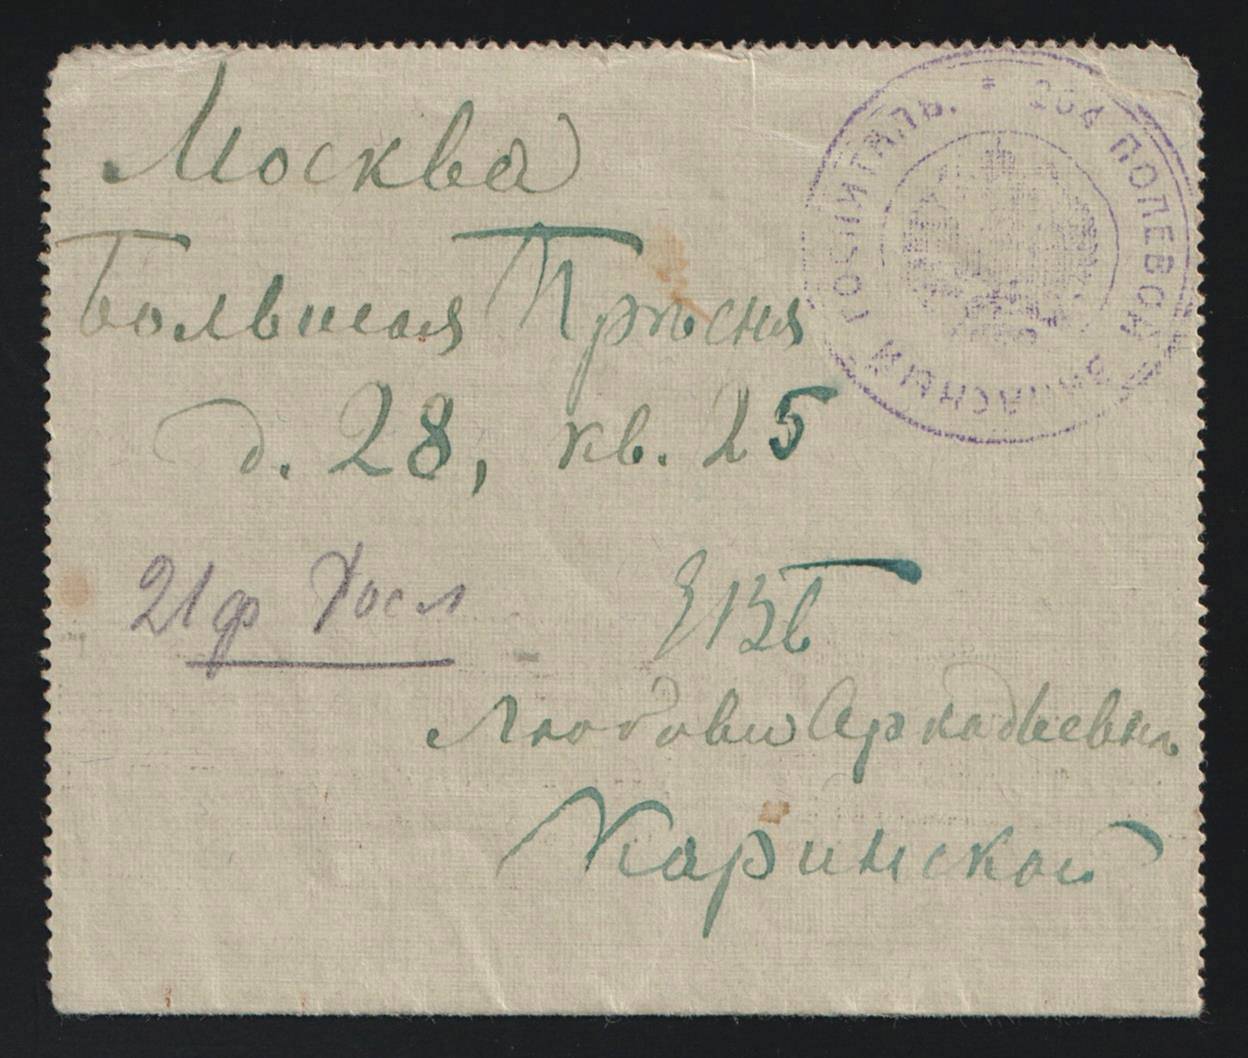 Москва
Большая Прѣсня
д. 28, кв. 25
21ф
ЕВБ
Любови Аркадьевнѣ
Каринской
264 ПОЛЕВОЙ ЗАПАСНЫЙ ГОСПИТАЛЬ.